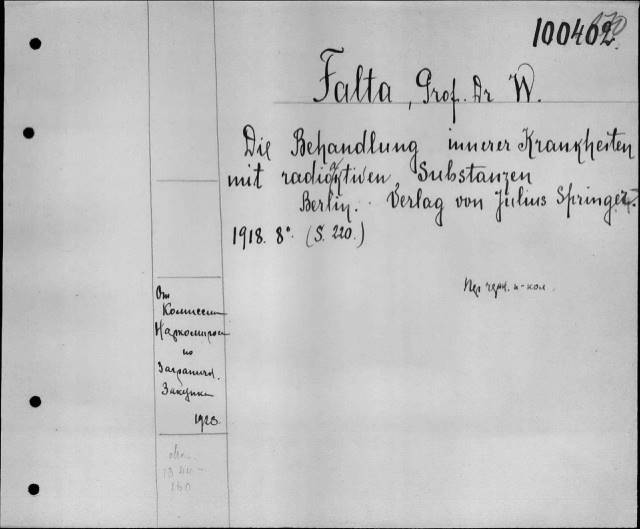 100402.
Falta, Prof. Dr W.
Die Behandlung innerer Krankheiten
mit radioaktiven Substanzen
Berlin. Verlag von Julius Springer.
1918. 8°. (S. 220.)
От
Комиссии
Наркомпроса
по
Заграничн.
Закупке
1923.